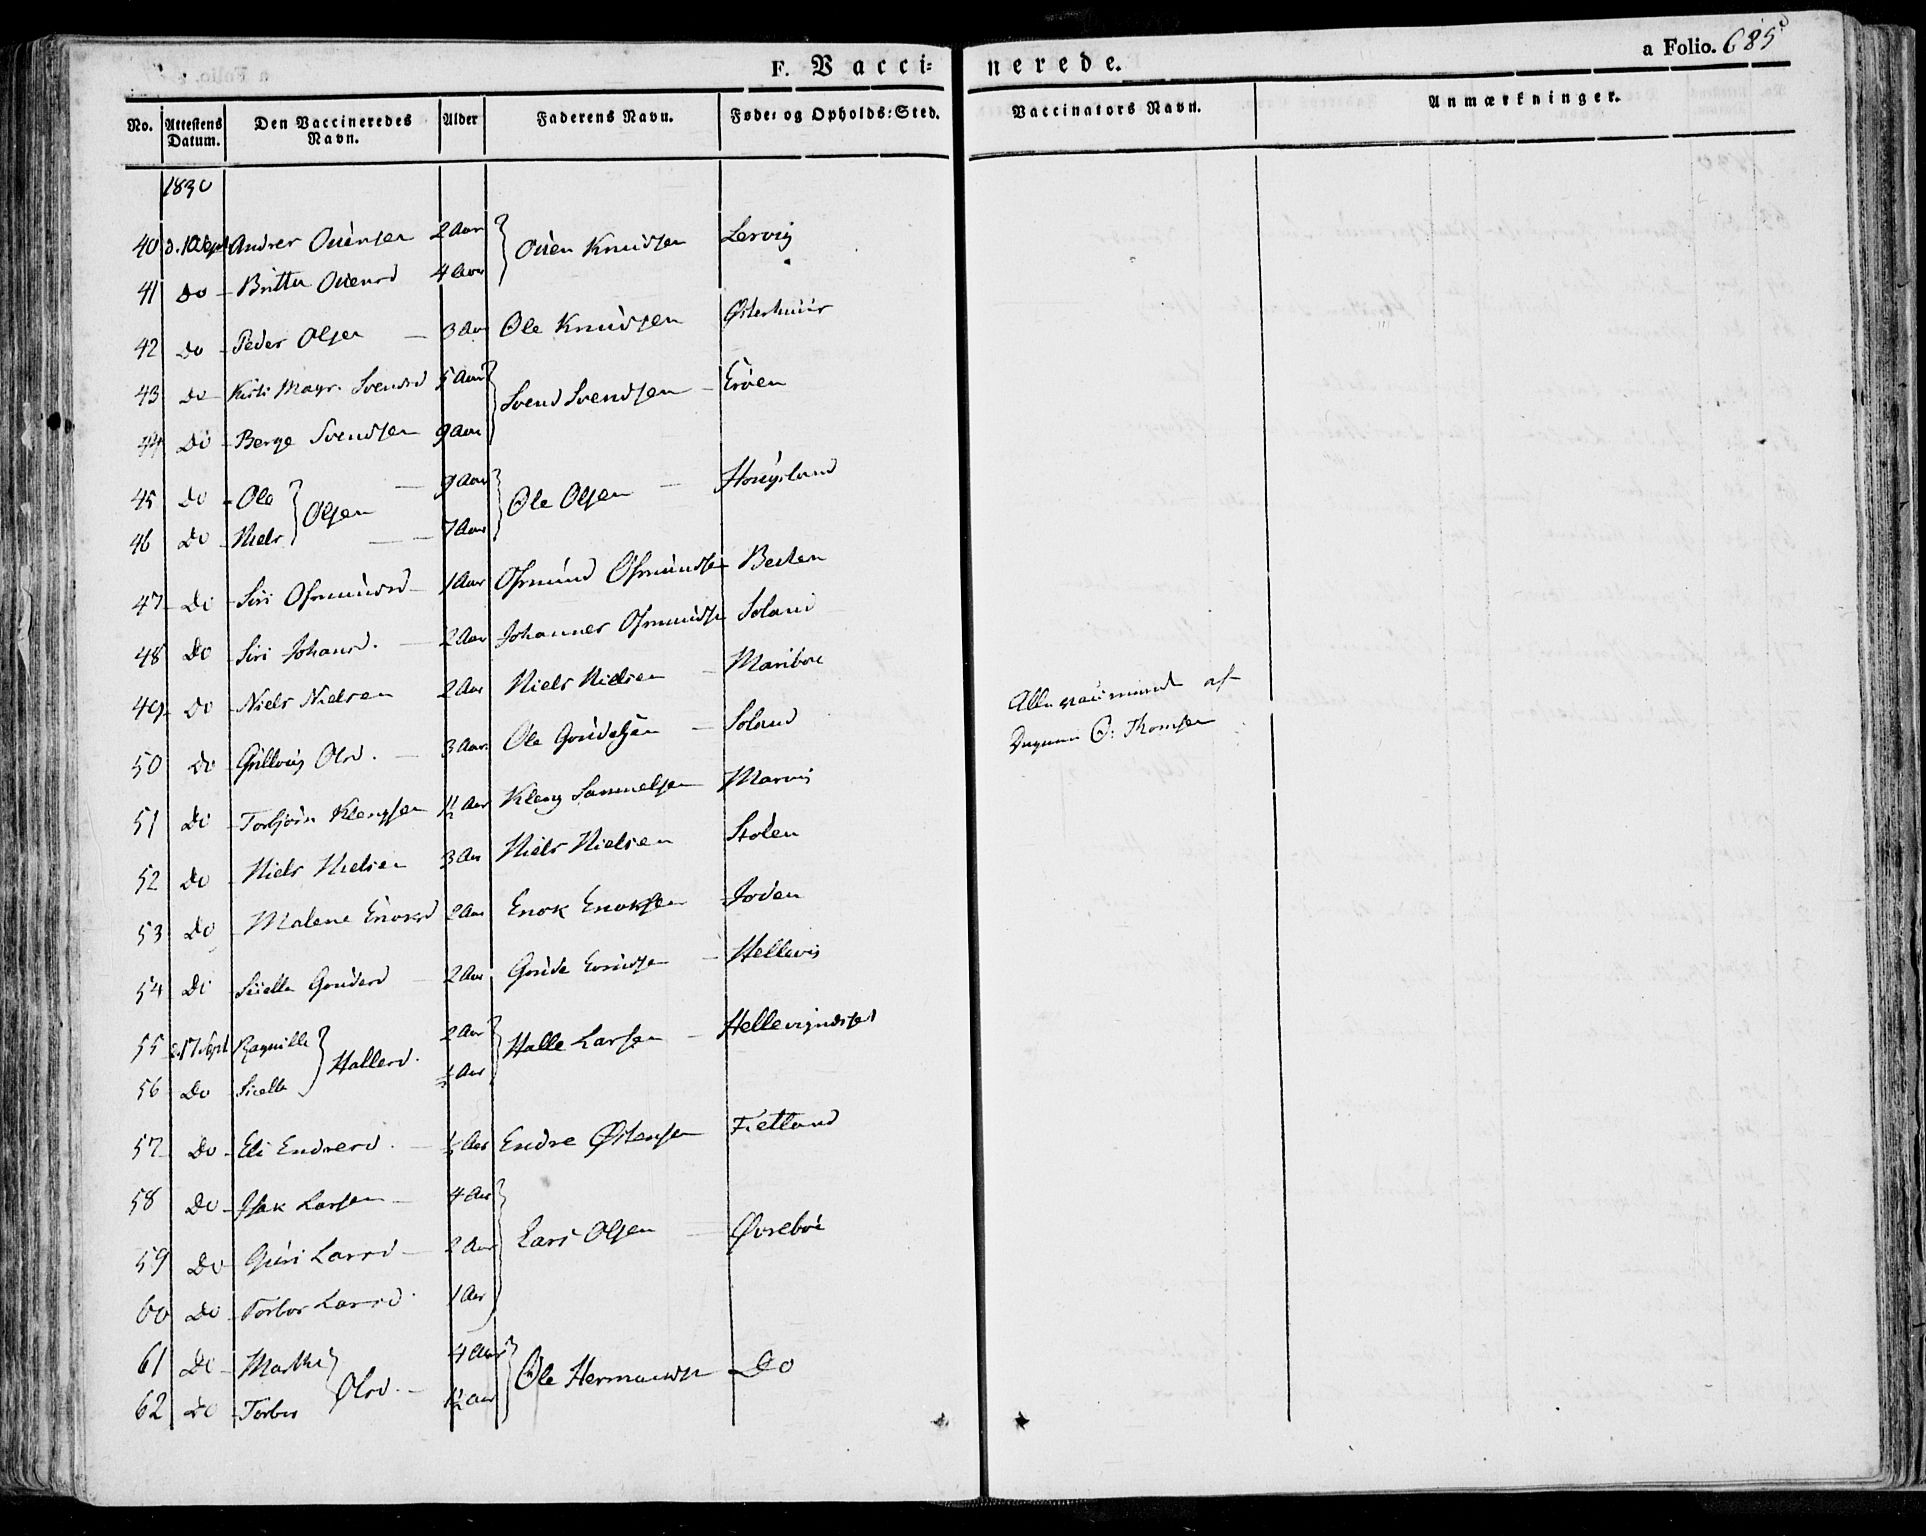 F. Vacci=
nerede.
a Folio. 685
No. Attestens Datum. Den Vaccineredes Navn. Alder Faderens Navn. Føde= og Opholds=Sted.
Vaccinators Navn. Anmærkninger.
1830
40 d. 10 Sept Andres Ouensen 2 Aar Ouen Knudsen Lervig
41 Do Britta Ouensd 4 Aar
42 Do Peder Olsen 3 Aar Ole Knudsen Østerhuus
43 Do Kirsti Magr. Svendsd 5 Aar Svend Svendsen
44 Do Berge Svendsen 9 Aar
45 Do Ole Olsen 9 Aar Ole Olsen Hougsland
46 Do Niels 7 Aar
47 Do Siri Osmundsd 1 Aar Osmund Osmundsen
48 Do Siri Johansd. 2 Aar Johannes Osmundsen Soland
49 Do Niels Nielsen 2 Aar Niels Nielsen Mariboe
50 Do Olsd. 3 Aar Ole Soland
51 Do Torbjørn Klengsen 1½ Aar Kleng Samuelsen Marvig
52 Do Niels Nielsen 3 Aar Niels Nielsen Stølen
53 Do Malene Enoksd 2 Aar Enok Enoksen
54 Do Sielle 2 Aar Hellevig
55 d. 17 Sept Ragnille Hallesd. 2 Aar Halle Larsen
56 Do Sielle ½ Aar
57 Do Eli Endresd. ½ Aar Endre Østensen Fietland
58 Do Isak Larsen 4 Aar Lars Olsen Øvreboe
59 Do Guri Larsd 2 Aar
60 Do Torbor Larsd. 1 Aar
61 Do Marthe Olsd. 4 Aar Ole Hermansen Do
62 Do Torbor 1½ Aar
Alle vaccinerede af
O: Thomsen